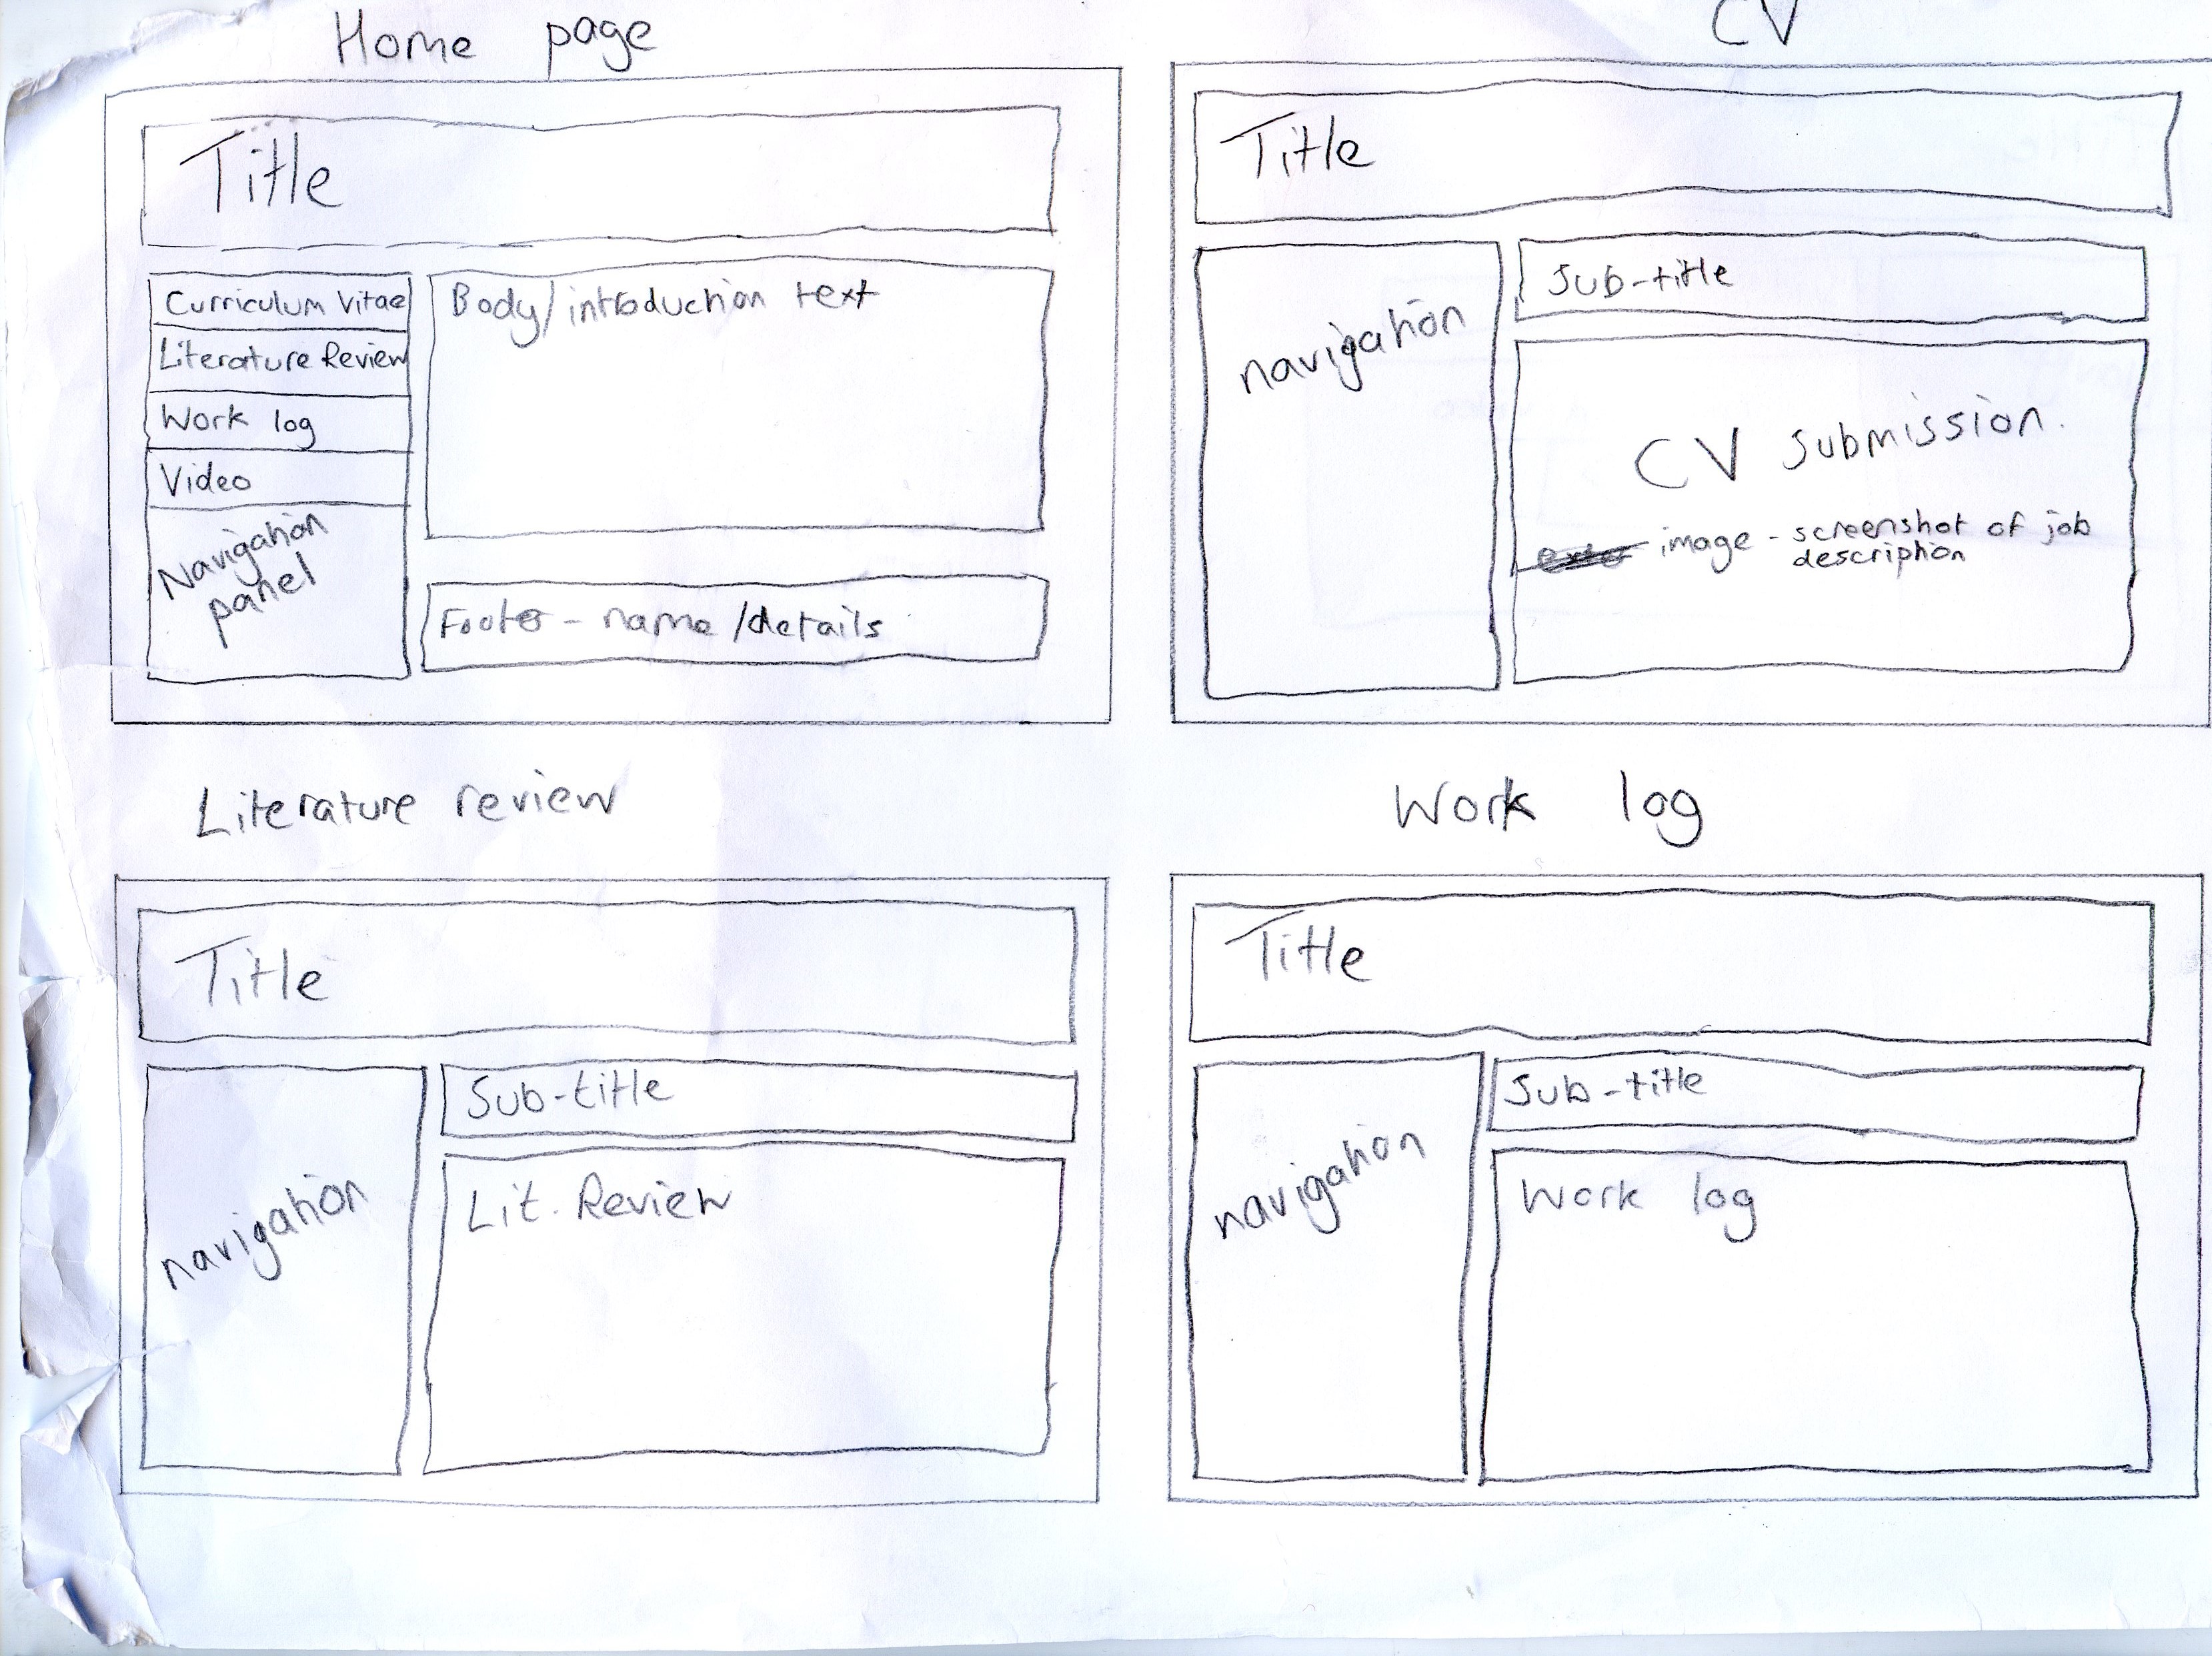 Home page
Title
Curriculum Vitae
Literature Review
Work log
Video
Navigation
panel
Body/introduction text
Footer - name/details
CV
Title
navigation
Sub-title
CV submission.
image - screenshot of job
description
Literature review
Title
navigation
Sub-title
Lit. Review
Work log
Title
navigation
Sub-title
Work log